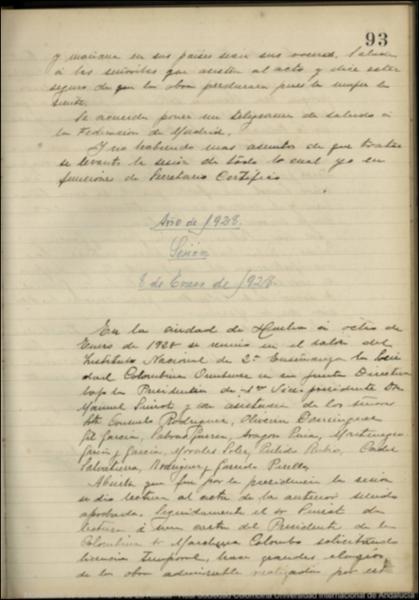 93
y mañana en sus paises sean sus voceros. Saluda
á las señoritas que asisten al acto y dice estar
seguro de que la obra perdurará pues la mujer la
siente.
Se acuerda poner un telegrama de saludo á
la Federación de Madrid.
Y no habiendo mas asuntos de que tratar
se levantó la sesión de todo lo cual yo en
funciones de Secretario Certifico
Año de 1928.
Sesión
8 de Enero de 1928.
En la ciudad de Huelva á ocho de
Enero de 1928 se reunió en el salón del
Instituto Nacional de 2ª Enseñanza la Socie
dad Colombina Onubense en su Junta Directiva
bajo la Presidencia del 1er Vice-presidente Don
Manuel Siurot y con asistencia de los señores
Consuelo Rodriguez, Oliveira Dominguez
Gil García, Garcia y Garcia, Morales
Rodriguez y Garrido Perelló.
Abierta que fue por la presidencia la sesión
se dió lectura al acta de la anterior siendo
aprobada. Seguidamente el Sr
lectura á una carta del Presidente de la
Colombina Sr Marchena Colombo solicitando
licencia temporal, hace grandes elogios
de la obra admirable realizada por este